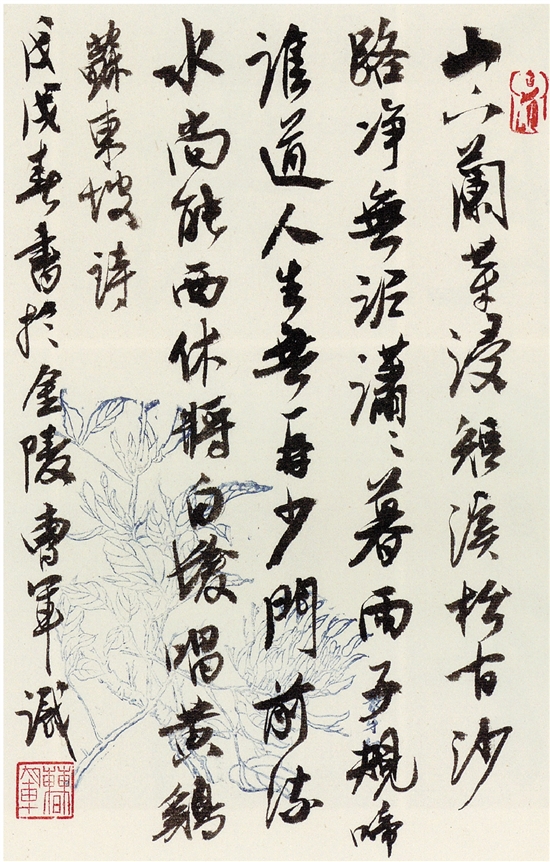 山下蘭芽浸短溪松沙
路净無泥瀟〻暮雨子規啼
誰道人生無再少門前流
水尚能西休將白髮唱黄鷄
蘇東坡詩
戊戌春書於金陵曹軍識